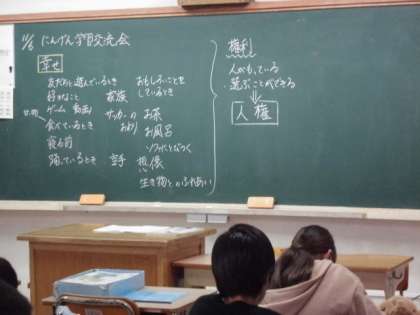 11/6 にんげん学習交流会
幸せ
友だちと遊んでいるとき
好きなこと
ゲーム 動画
食べているとき
寝る前
踊っているとき
家族
サッカーの
おわり
空手
おもしろいことを
しているとき
お茶
お風呂
ソファにとびつく
想像
生き物とのふれあい
権利
人がもっている
選ぶことができる
人権